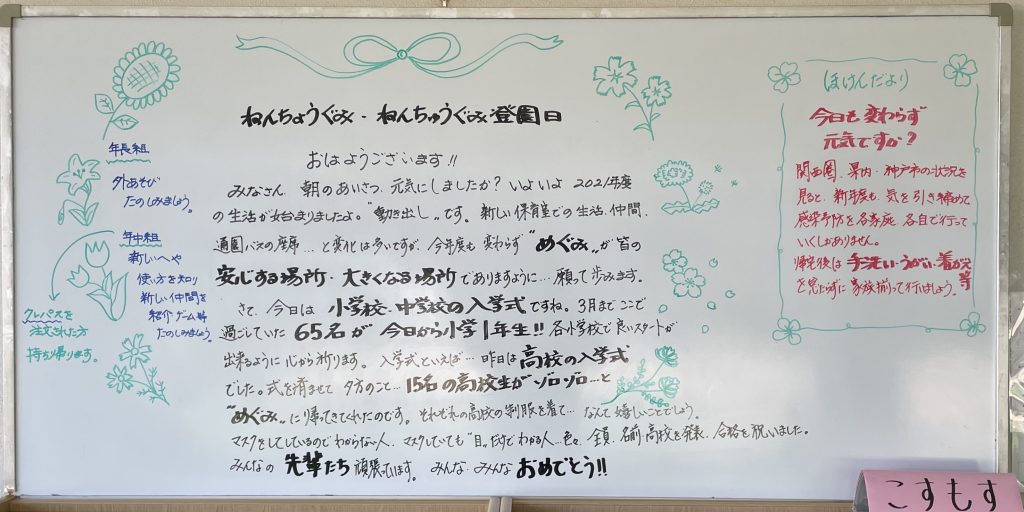 ねんちょうぐみ・ねんちゅうぐみ登園日
おはようございます!!
みなさん 朝のあいさつ、元気にしましたか？いよいよ 2021年度
の生活が始まりましたよ。"動き出し"です。新しい保育室での生活、仲間、
通園バスの座席…と変化は多いですが、今年度も変わらず"めぐみ"が皆の
安心する場所・大きくなる場所でありますように…願って歩みます。
さて、今日は 小学校・中学校の入学式ですね。3月までここで
過ごしていた 65名が今日から小学1年生!! 各小学校で良いスタートが
出来るように心から祈ります。入学式といえば…昨日は高校の入学式
でした。式を済ませて 夕方のこと…15名の高校生がゾロゾロ…と
"めぐみ"に帰ってきてくれたのです。それぞれの高校の制服を着て…なんて嬉しいことでしょう。
マスクをしているのでわからない人、マスクしていても"目"だけでわかる人…色々、全員、名前、高校を発表、合格を祝いました。
みんなの 先輩たち 頑張っています。みんな みんな おめでとう!!
年長組
外あそび
たのしみましょう。
年中組
新しいへや
使い方を知り
新しい仲間を
紹介ゲーム等
たのしみましょう。
クレパスを
注文された方
持ち帰ります。
ほけんだより
今日も変わらず
元気ですか？
関西圏、県内・神戸市の状況を
見ると、新年度も、気を引き締めて
感染予防を各家庭、各自で行って
いくしかありません。
帰宅後は 手洗い・うがい・着がえ等
を怠らずに家族揃って行いましょう。
こすもす